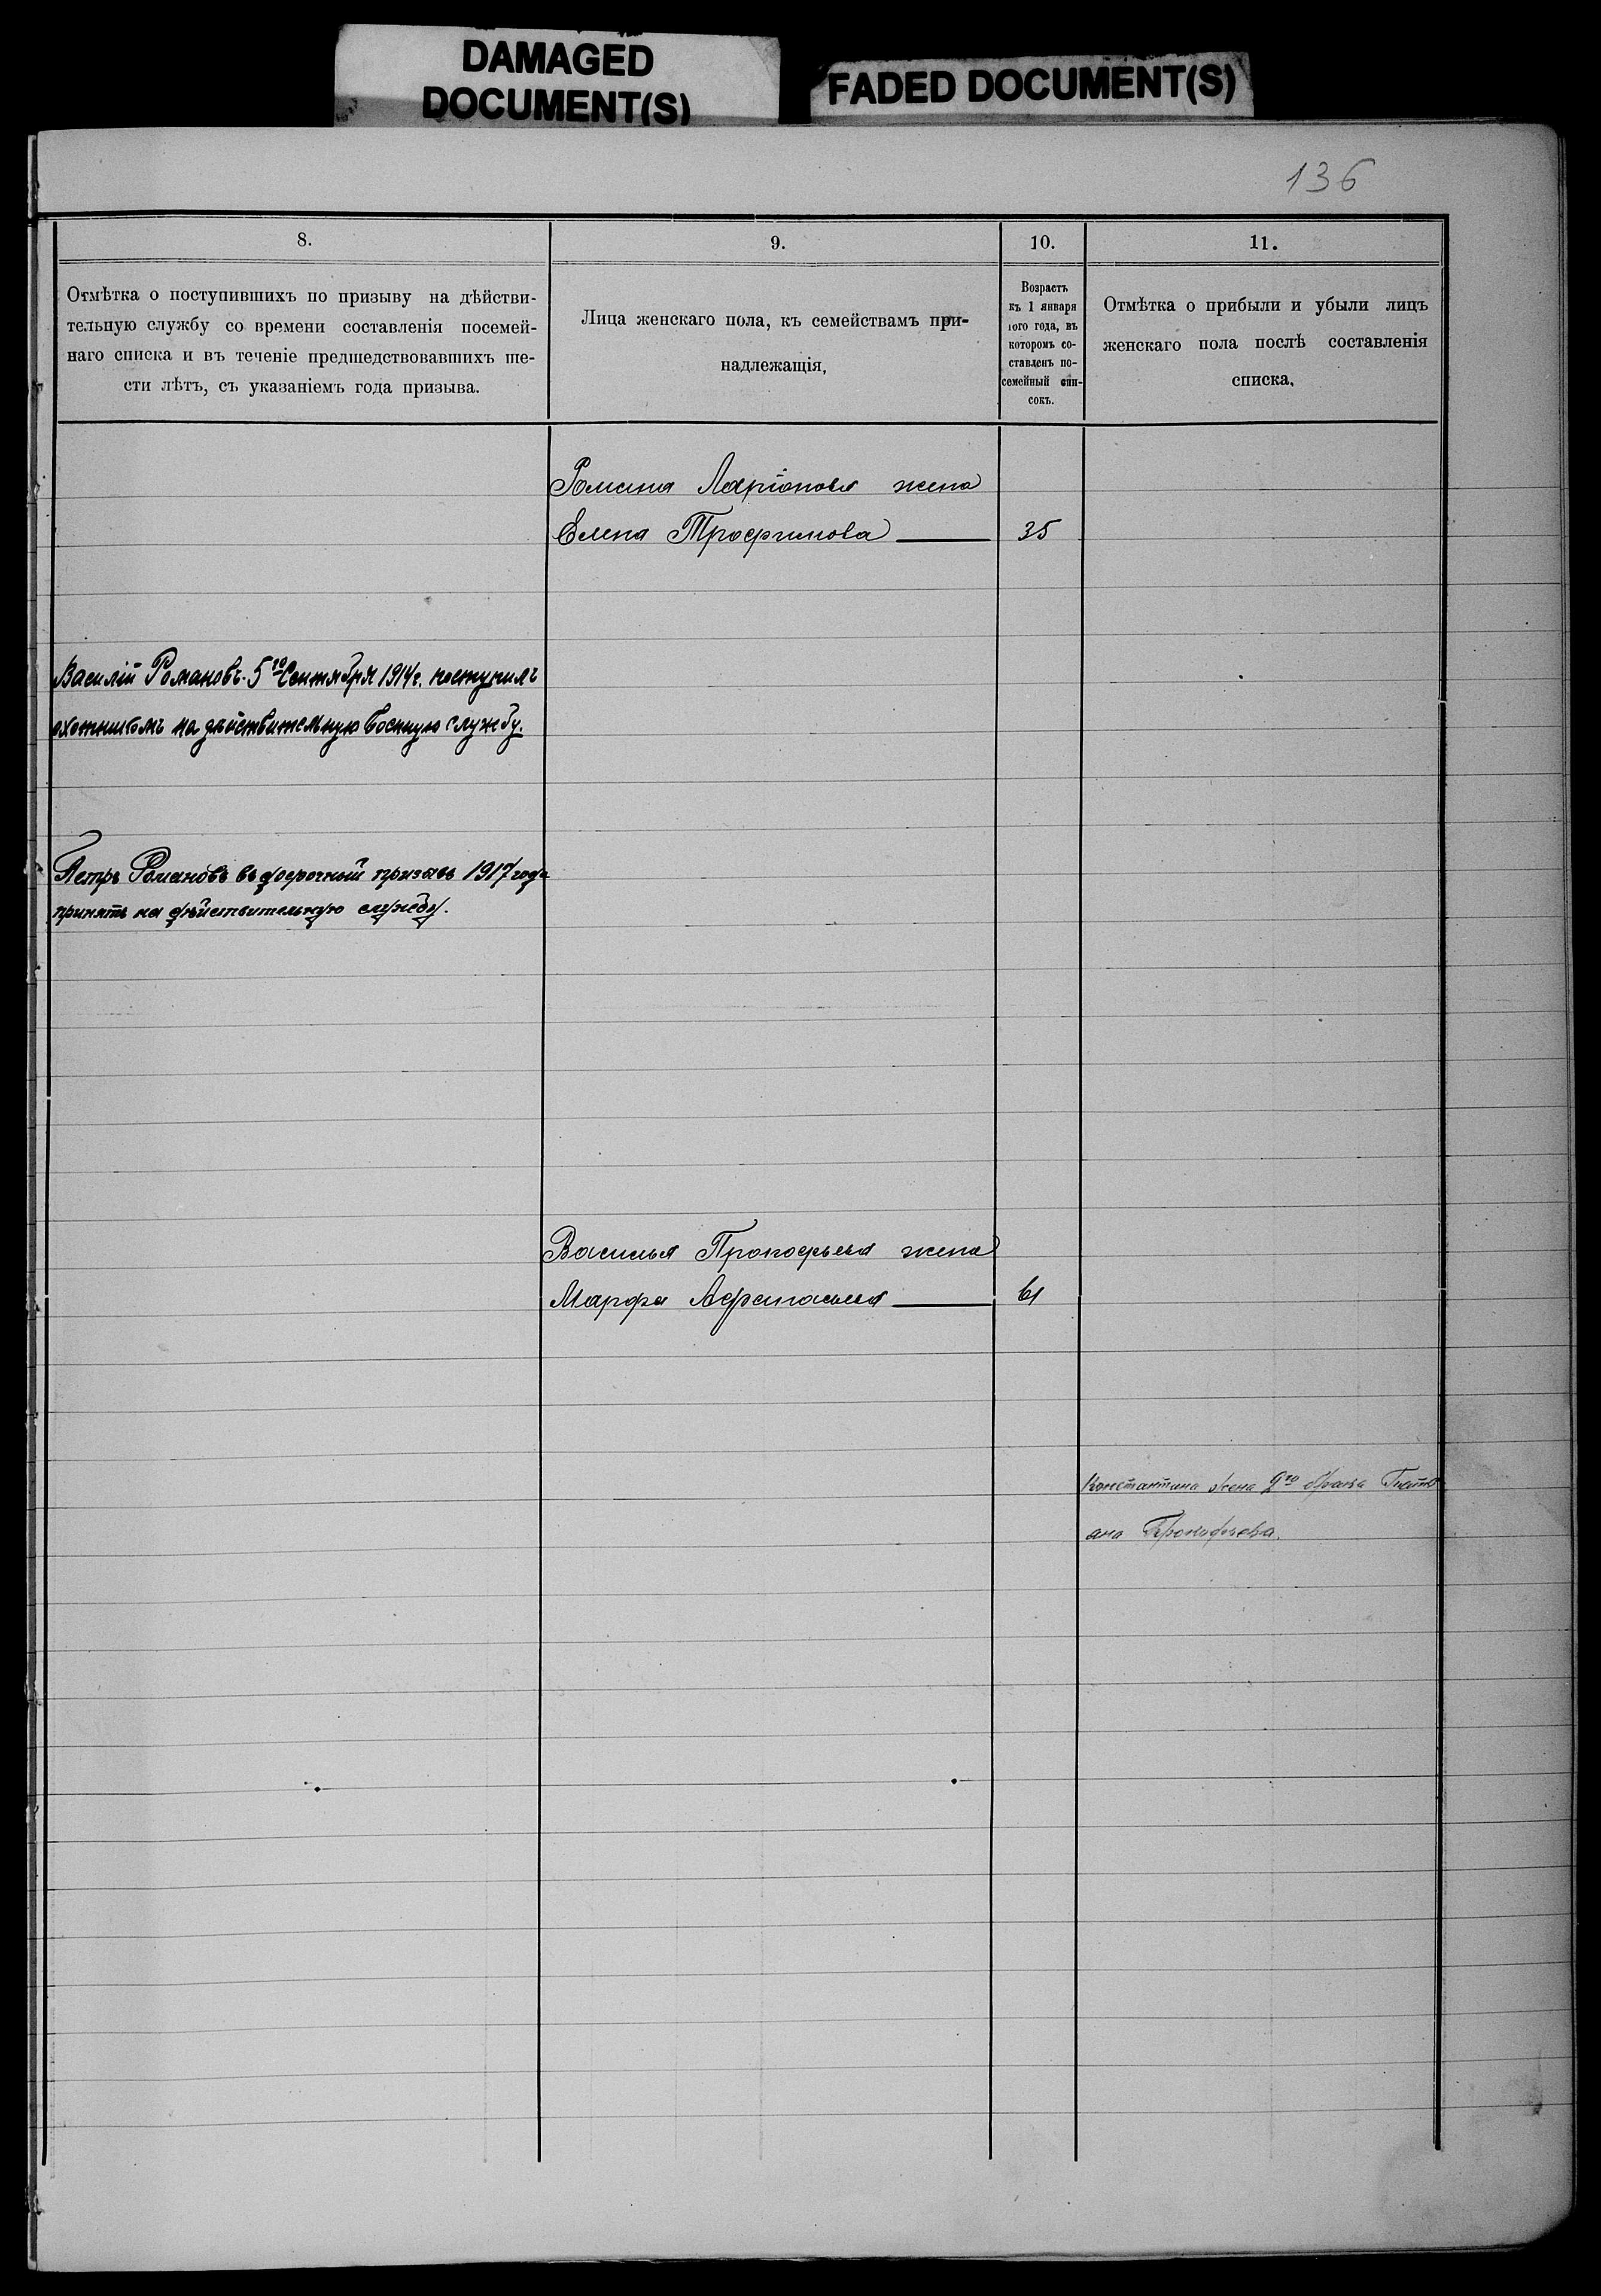 DAMAGED
DOCUMENT(S)
FADED DOCUMENT(S)
136
8.
Отмѣтка о поступившихъ по призыву на дѣйстви-
тельную службу со времени составленія посемей-
наго списка и въ теченіе предшедствовавшихъ ше-
сти лѣтъ, съ указаніемъ года призыва.
9.
Лица женскаго пола, къ семействамъ при-
надлежащія,
10.
Возрастъ
къ 1 января
того года, въ
которомъ со-
ставленъ по-
семейный спи-
сокъ.
11.
Отмѣтка о прибыли и убыли лицъ
женскаго пола послѣ составленія
списка.
Романа Ларіонова жена
Елена Трофимова 35
Василій Романовъ. 5го Сентября 1914г. поступилъ
охотникомъ на дѣйствительную военную службу.
Петръ Романовъ въ досрочный призывъ 1917 года
принятъ на дѣйствительную службу.
Василья Прокофьева жена
Марфа Афанасьева 61
Константина жена 2го брака
Прокофьева.